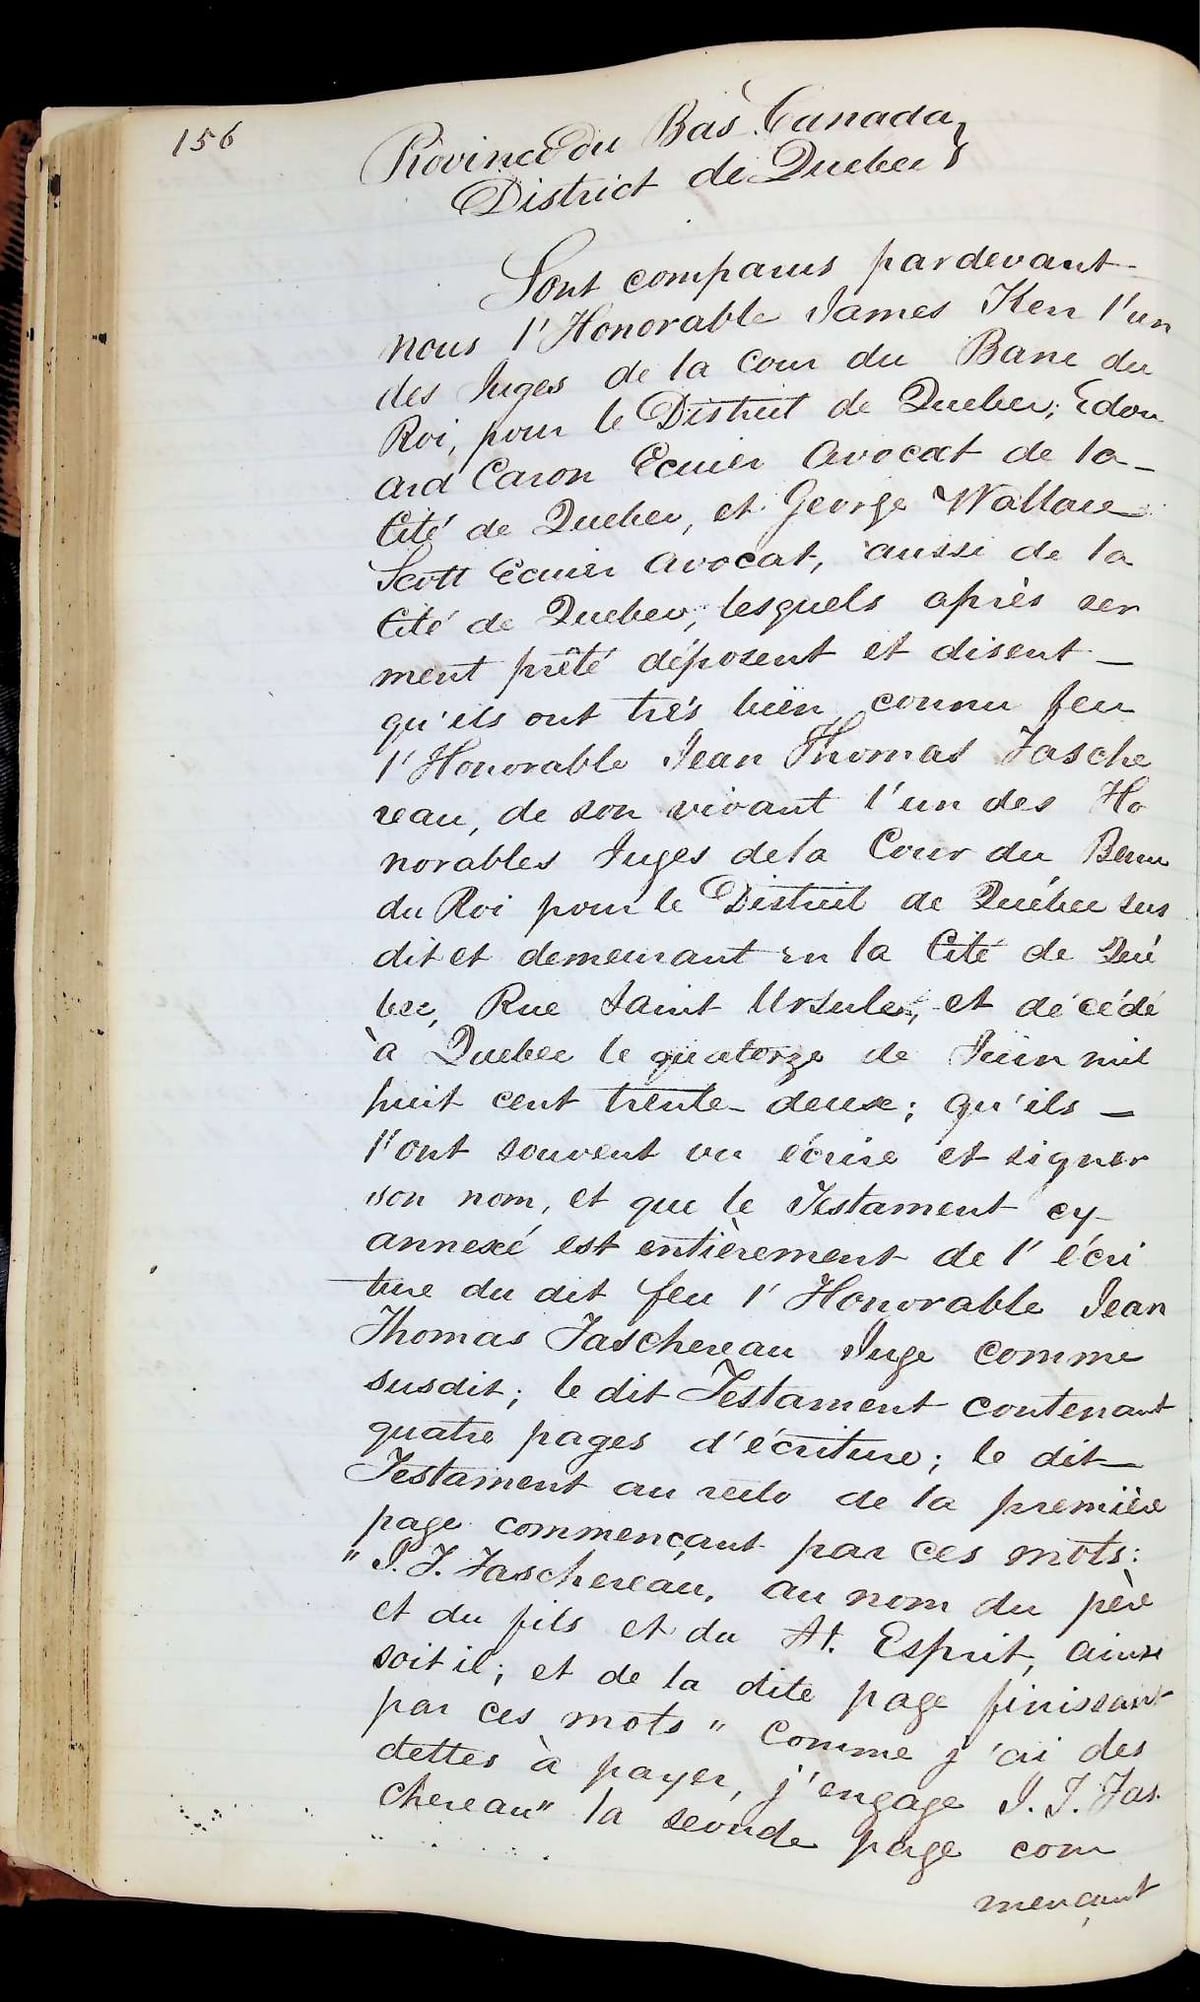 156
Province du Bas Canada }
District de Quebec }
Sont comparus pardevant
nous l'Honorable James Kerr l'un
des Juges de la Cour du Banc du
Roi, pour le District de Quebec; Edou
ard Caron Ecuier Avocat de la
Cité de Quebec, et George Wallace
Scott Ecuier Avocat, aussi de la
Cité de Quebec, lesquels après ser
ment prêté déposent et disent
qu'ils ont très bien connu feu
l'Honorable Jean Thomas Tasche
reau, de son vivant l'un des Ho
norables Juges de la Cour du Banc
du Roi pour le District de Québec sus
dit et demeurant en la Cité de Qué
bec, Rue Saint Ursule, et décédé
à Quebec le quatorze de Juin mil
huit cent trente-deux; qu'ils
l'ont souvent vu écrire et signer
son nom, et que le Testament cy
annexé est entièrement de l'écri
ture du dit feu l'Honorable Jean
Thomas Taschereau Juge comme
susdit; le dit Testament contenant
quatre pages d'écriture; le dit
Testament au recto de la première
page commençant par ces mots:
"J. T. Taschereau, au nom du père
et du fils et du St. Esprit, ainsi
soit il; et de la dite page finissant
par ces mots " comme j'ai des
dettes à payer, j'engage J. T. Tas.
chereau" la seconde page com
mençant